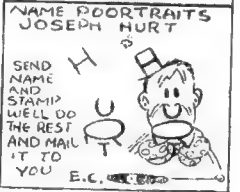 NAME POORTRAITS
JOSEPH HURT
SEND
NAME
AND
STAMP
WE'LL DO
THE REST
AND MAIL
IT TO
YOU
H
U
R
T
E.C.